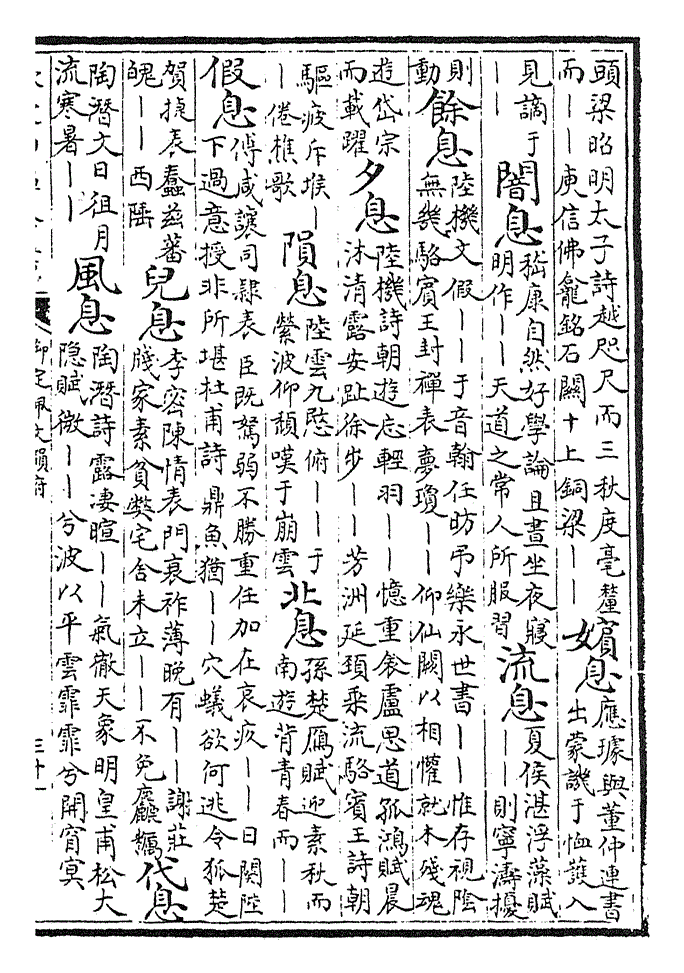 頭梁昭明太子詩越咫尺而三秋度毫釐
而｜｜庾信佛龕銘石關十上銅梁｜｜
嬪息
應璩與董仲連書
出蒙譏于恤蓷入
見謫于
｜｜
闇息
嵇康自然好學論且晝坐夜寢
明作｜｜天道之常人所服習
流息
夏侯湛浮藻賦
｜｜則寧濤擾
則
動
餘息
陸機文假｜｜于音翰任昉弔樂永世書｜｜惟存視陰
無幾駱賓王封禪表夢瓊｜｜仰仙闕以相懽就木殘魂
遊岱宗
而載躍
夕息
陸機詩朝遊忘輕羽｜｜憶重衾盧思道孤鴻賦晨
沐清露安趾徐步｜｜芳洲延頸乘流駱賓王詩朝
驅疲斥堠｜
｜倦樵歌
隕息
陸雲九愍俯｜｜于
縈波仰頹嘆于崩雲
北息
孫楚鴈賦迎素秋而
南遊背青春而｜｜
假息
傅咸讓司隸表臣既駑弱不勝重任加在哀疚｜｜日闋陸
下過意授非所堪杜甫詩鼎魚猶｜｜穴蟻欲何逃令狐楚
賀捷表蠢茲蕃
醜｜｜西陲
兒息
李密陳情表門衰祚薄晚有｜｜謝莊
牋家素貧弊宅舍未立｜｜不免麤糲
代息
陶潛文日徂月
流寒暑｜｜
風息
陶潛詩露淒暄｜｜氣徹天象明皇甫松大
隱賦微｜｜兮波以平雲霏霏兮開窅冥
御定佩文韻府